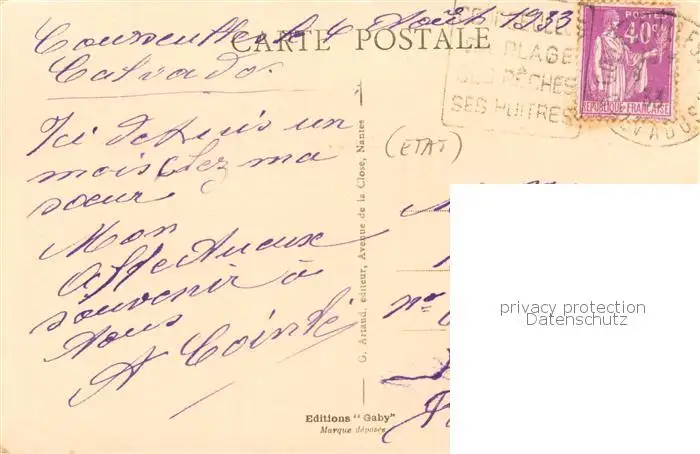 Courseulles le 4 Août 1933
Calvados.
CARTE POSTALE
SA PLAGE
SES PÊCHES
SES HUITRES
POSTES
40c
REPUBLIQUE FRANÇAISE
CALVADOS
Ici depuis un
mois chez ma
sœur
Mon
affectueux
souvenir à
Vous
A Cointé
(ETAT)
G. Artaud, editeur, Avenue de la Close, Nantes
Editions "Gaby"
Marque déposée
privacy protection
Datenschutz